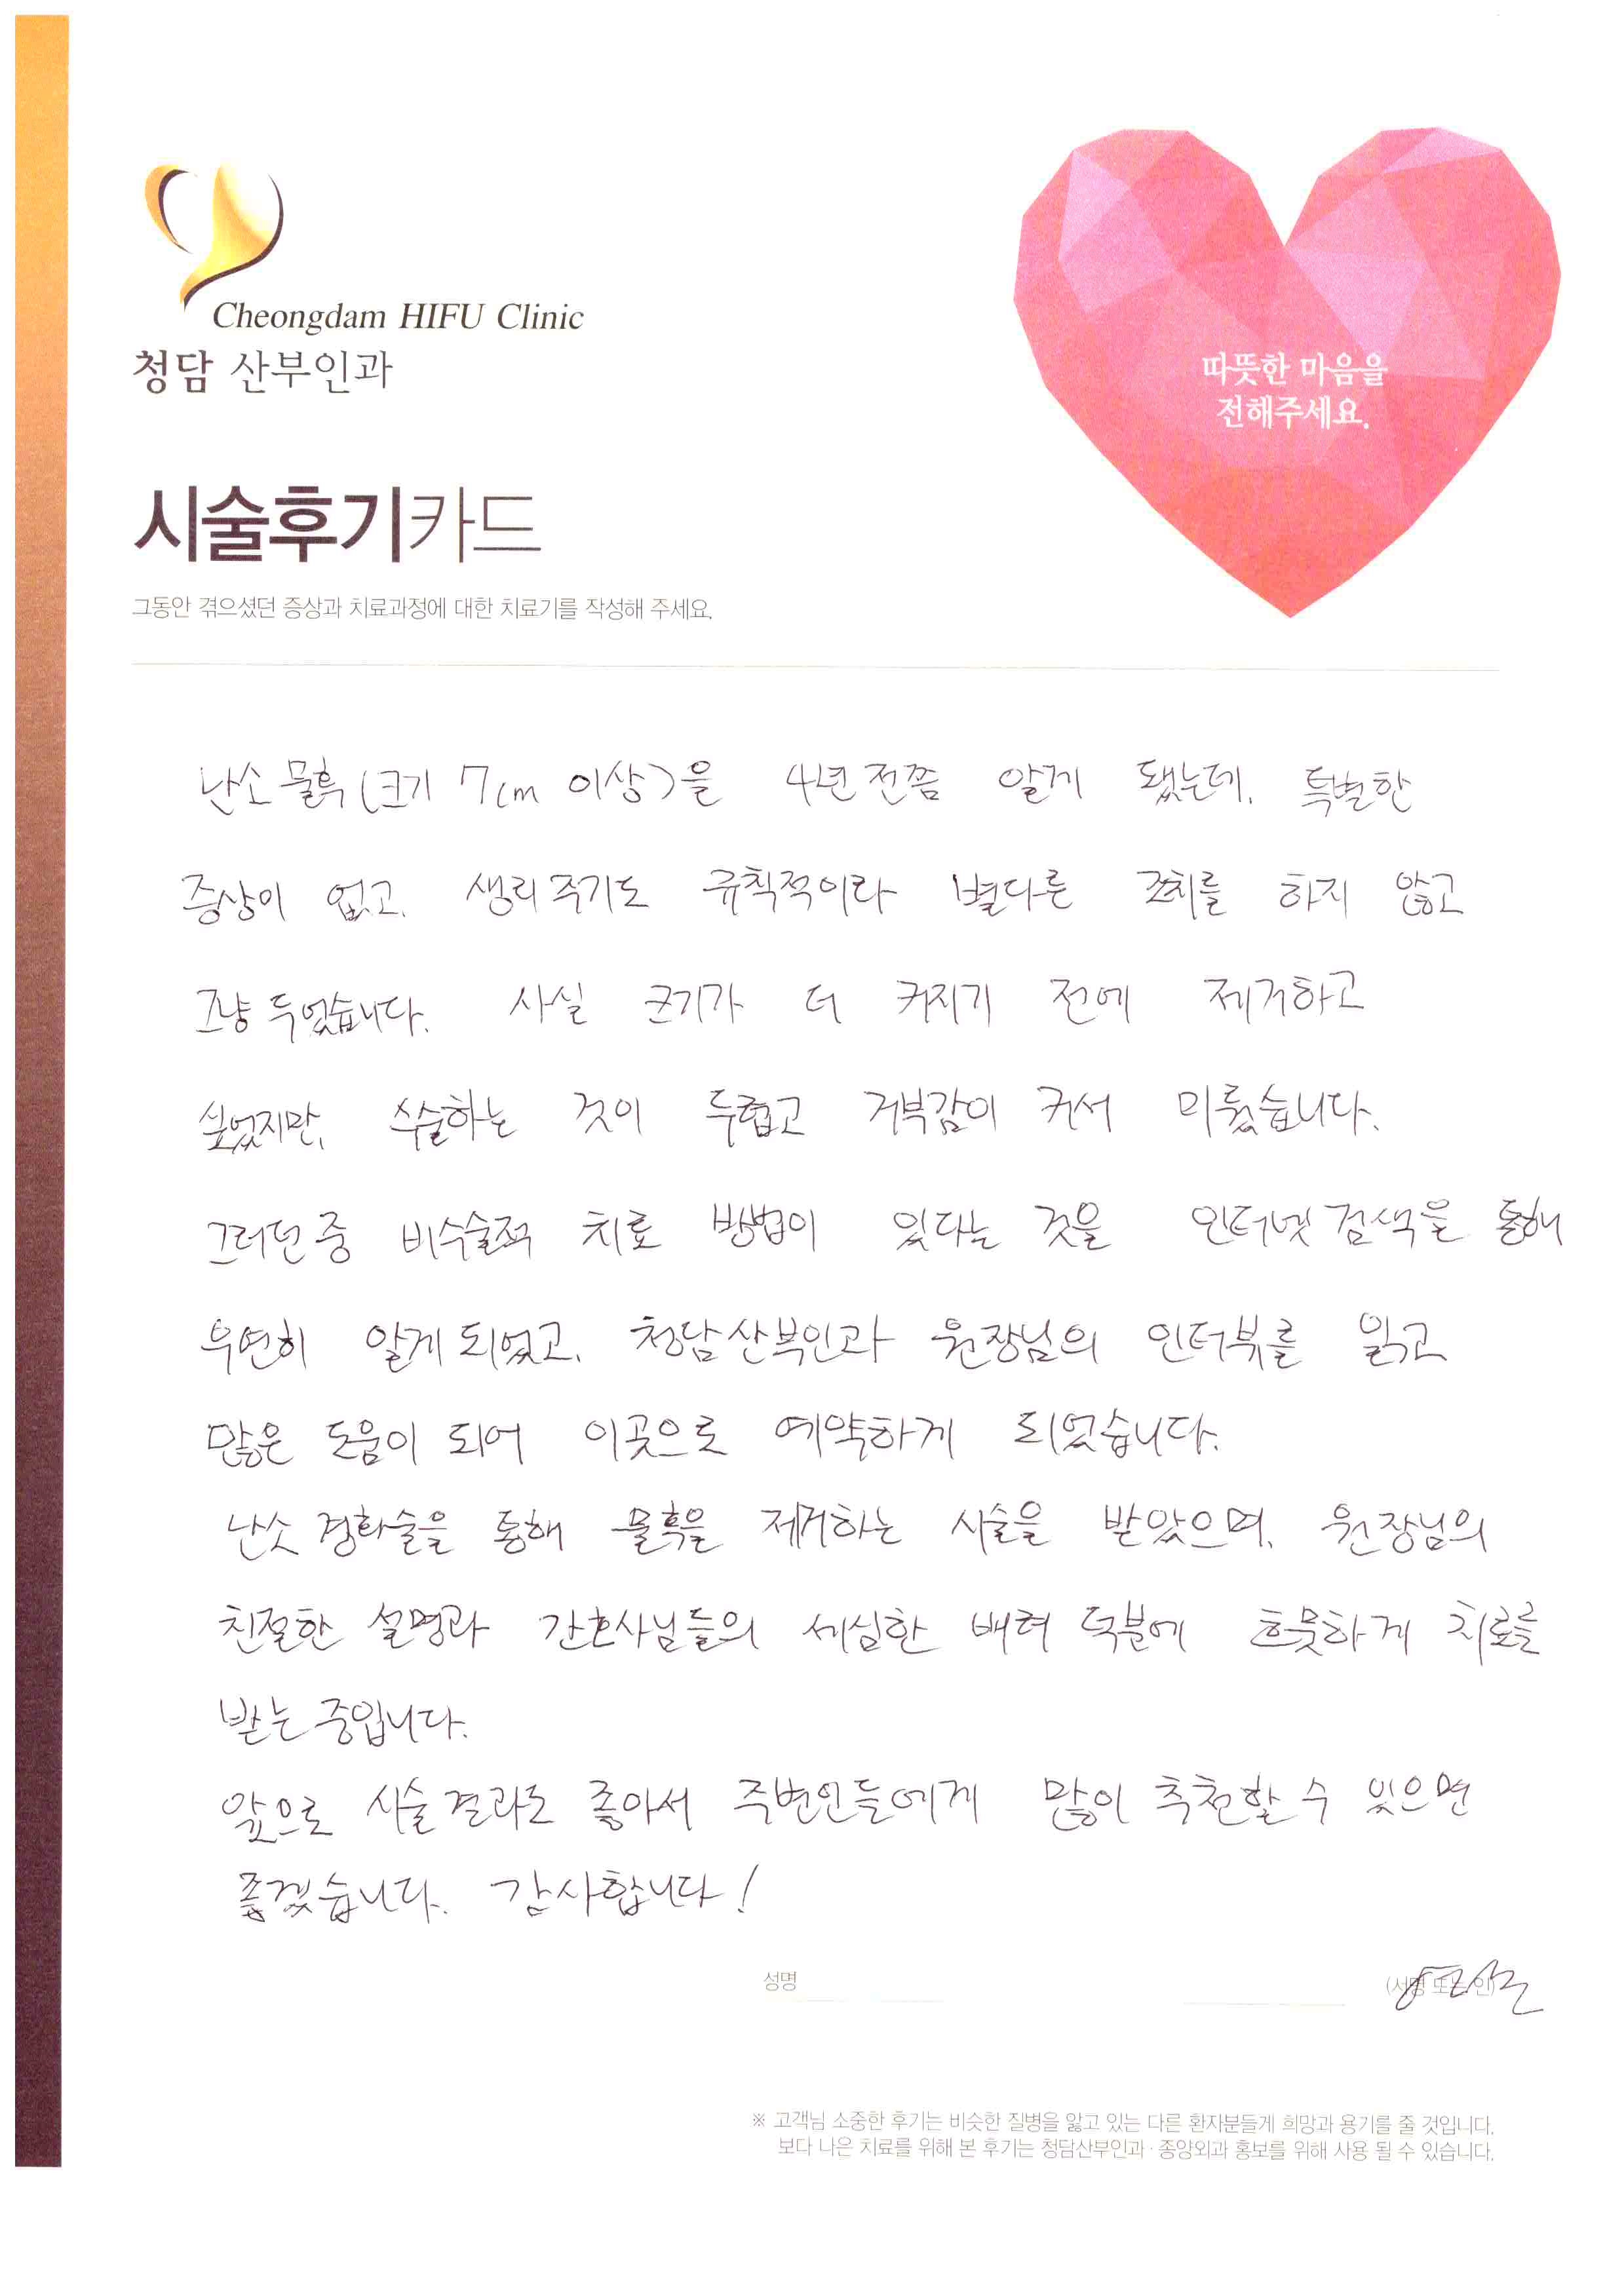 Cheongdam HIFU Clinic
청담 산부인과
따뜻한 마음을
전해주세요.
시술후기카드
그동안 겪으셨던 증상과 치료과정에 대한 치료기를 작성해 주세요.
난소 물혹 (크기 7cm 이상)을 4년 전쯤 알게 됐는데, 특별한
증상이 없고, 생리 주기도 규칙적이라 별다른 조치를 하지 않고
그냥 두었습니다. 사실 크기가 더 커지기 전에 제거하고
싶었지만, 수술하는 것이 두렵고 거부감이 커서 미뤘습니다.
그러던 중 비수술적 치료 방법이 있다는 것을 인터넷 검색을 통해
우연히 알게 되었고, 청담산부인과 원장님의 인터뷰를 읽고
많은 도움이 되어 이곳으로 예약하게 되었습니다.
난소 경화술을 통해 물혹을 제거하는 시술을 받았으며, 원장님의
친절한 설명과 간호사님들의 세심한 배려 덕분에 흐뭇하게 치료를
받는 중입니다.
앞으로 시술 결과도 좋아서 주변인들에게 많이 추천할 수 있으면
좋겠습니다. 감사합니다!
성명 (서명 또는 인)
※ 고객님 소중한 후기는 비슷한 질병을 앓고 있는 다른 환자분들게 희망과 용기를 줄 것입니다.
보다 나은 치료를 위해 본 후기는 청담산부인과 · 종양외과 홍보를 위해 사용 될 수 있습니다.